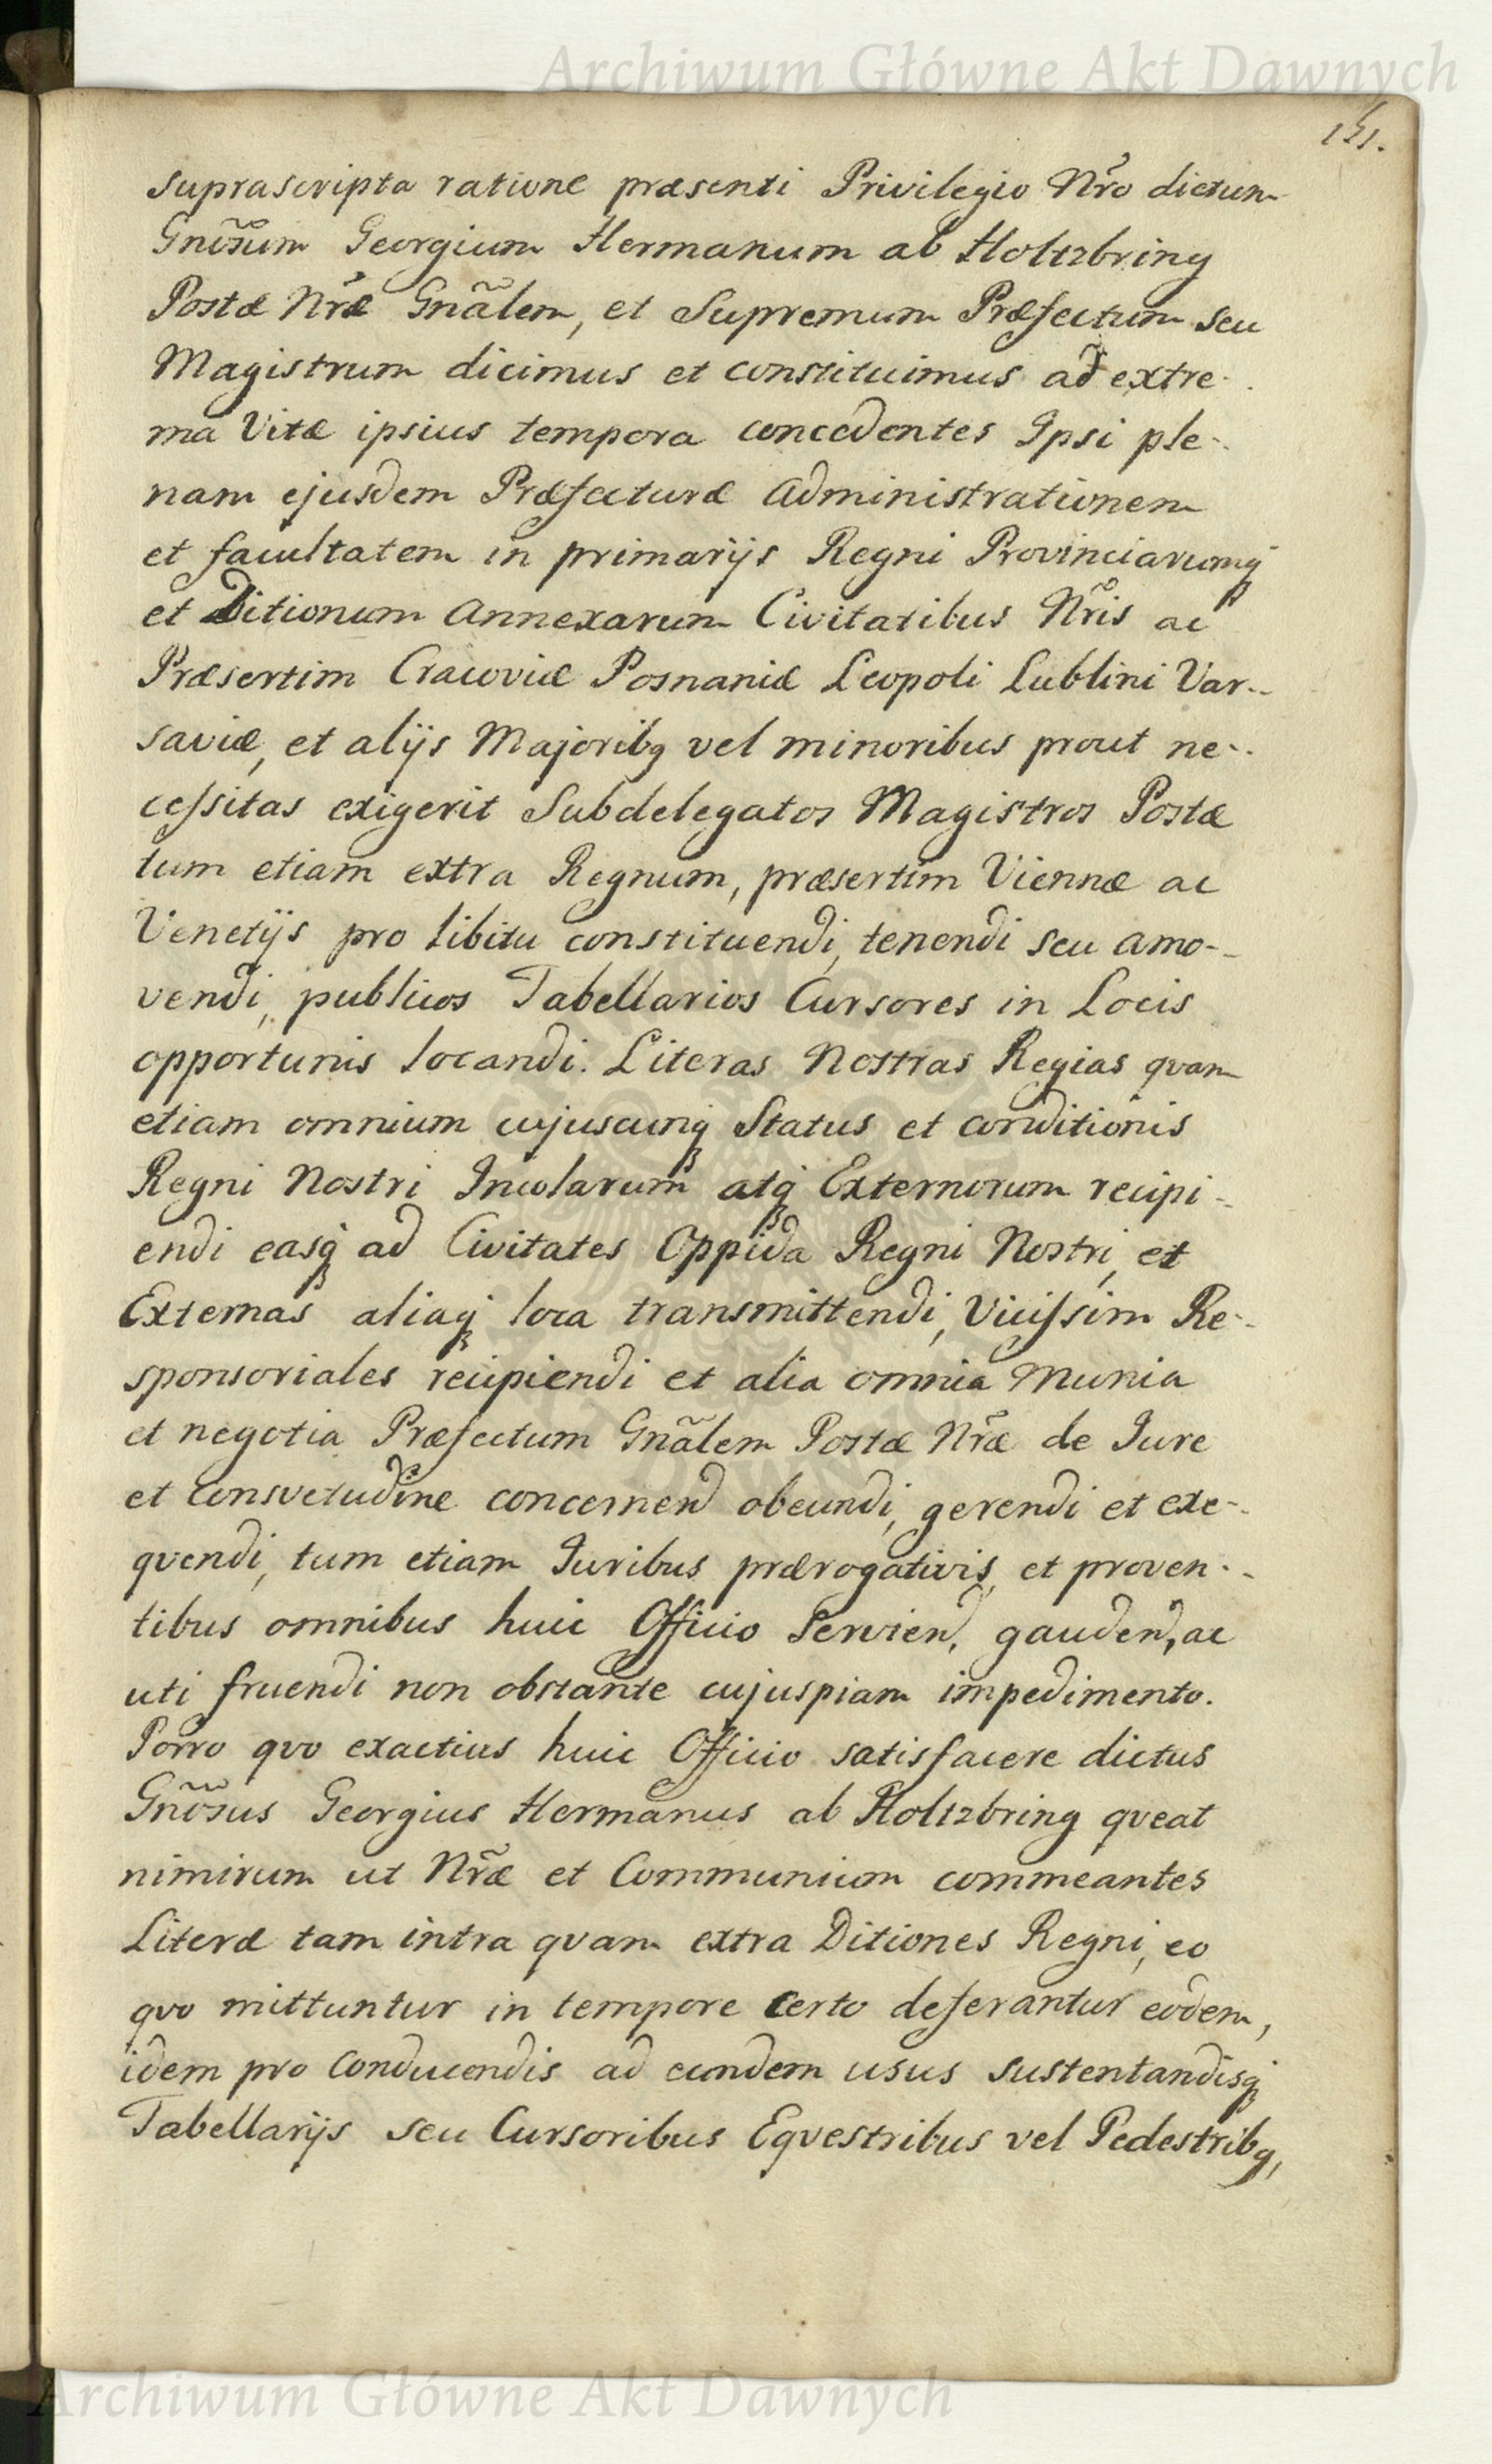 Archiwum Główne Akt Dawnych
151.
suprascripta ratione præsenti Privilegio Nr̃o dictum
Gnõsum Georgium Hermanum ab Holtzbring
Postæ Nr̃æ Gnãlem, et Supremum Præfectum seu
Magistrum dicimus et constituimus ad extre-
ma Vitæ ipsius tempora concedentes Ipsi ple-
nam ejusdem Præfecturæ administrationem
et facultatem in primarijs Regni Provinciarumq́
et Ditionum annexarum Civitatibus Nr̃is ac
Præsertim Cracoviæ Posnaniæ Leopoli Lublini Var-
saviæ, et alijs Majoribq vel minoribus prout ne-
cessitas exigerit Subdelegatos Magistros Postæ
tum etiam extra Regnum, præsertim Viennæ ac
Venetijs pro libitu constituendi, tenendi seu amo-
vendi, publicos Tabellarios Cursores in Locis
opportunis locandi. Literas Nostras Regias quam
etiam omnium cujuscunq́ Status et conditionis
Regni Nostri Incolarum atq́ Externorum recipi-
endi easq́ ad Civitates Oppida Regni Nostri, et
Externas aliaq́ loca transmittendi, Vicissim Re-
sponsoriales recipiendi et alia omnia Munia
et negotia Præfectum Gnãlem Postæ Nr̃æ de Jure
et Consvetudine concernend obeundi, gerendi et exe-
quendi, tum etiam Juribus prærogativis, et proven-
tibus omnibus huic Officio Servien, gauden, ac
uti fruendi non obstante cujuspiam impedimento.
Porro quo exactius huic Officio satisfacere dictus
Gnõsus Georgius Hermanus ab Holtzbring queat
nimirum ut Nr̃æ et Communium commeantes
Literæ tam intra quam extra Ditiones Regni, eo
quo mittuntur in tempore certo deferantur eodem,
idem pro conducendis ad eundem usus sustentandisq́
Tabellarijs seu Cursoribus Eqvestribus vel Pedestribq,
Archiwum Główne Akt Dawnych